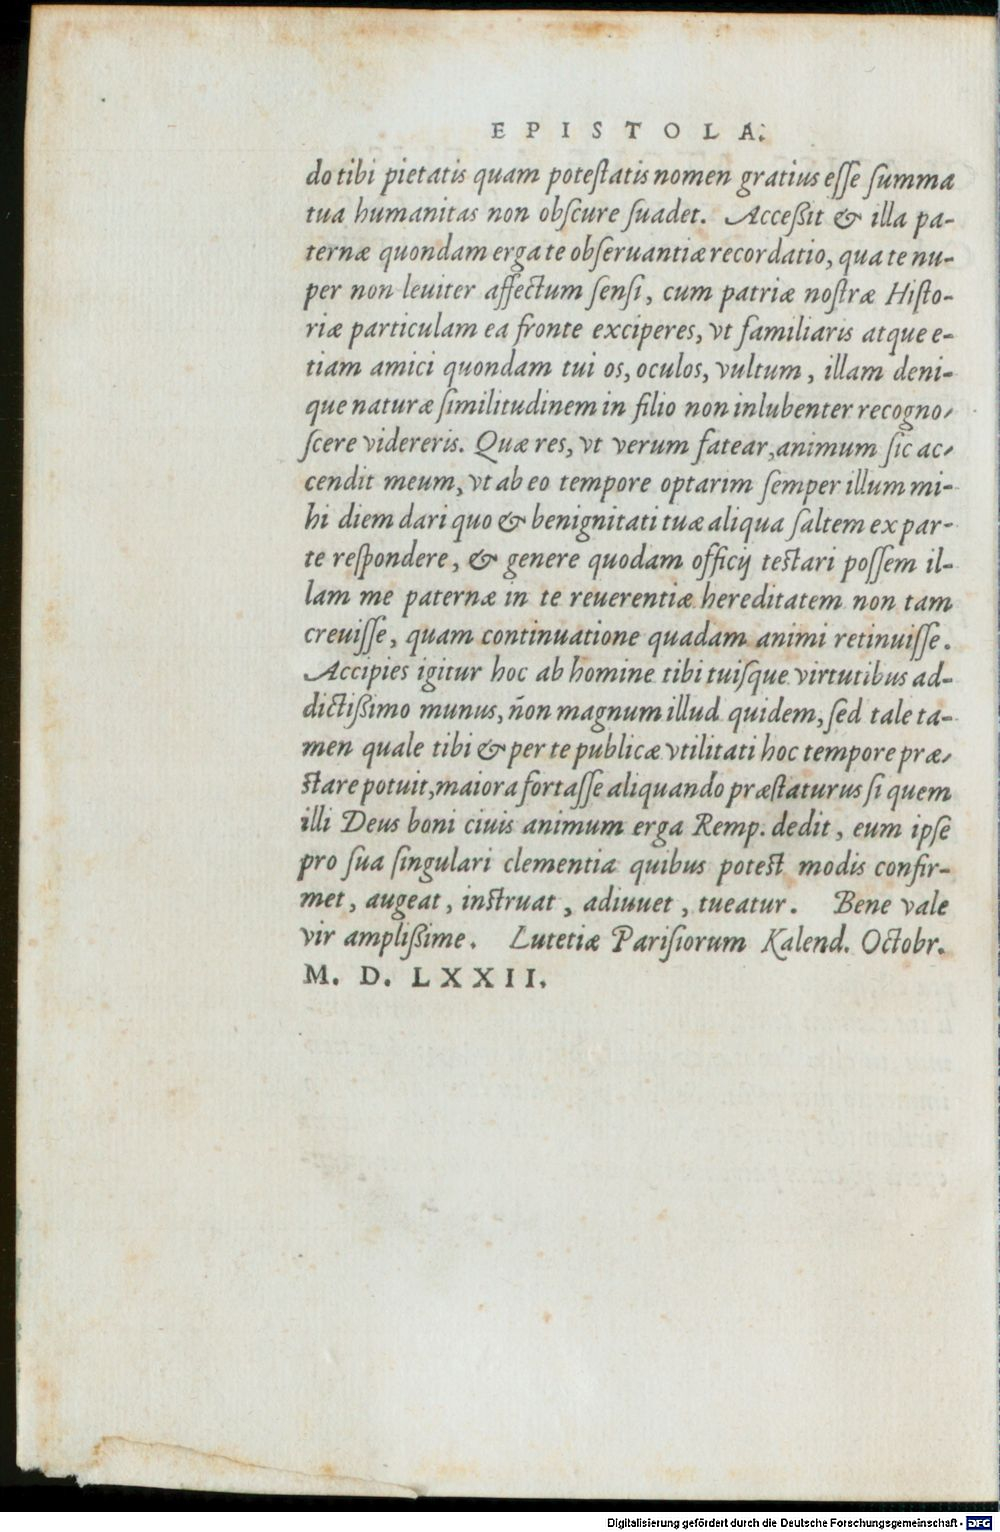 EPISTOLA.
do tibi pietatis quam poteſtatis nomen gratius eſſe ſumma
tua humanitas non obſcure ſuadet. Acceßit & illa pa-
ternæ quondam erga te obſeruantiæ recordatio, qua te nu-
per non leuiter affectum ſenſi, cum patriæ noſtræ Hiſto-
riæ particulam ea fronte exciperes, vt familiaris atque e-
tiam amici quondam tui os, oculos, vultum, illam deni-
que naturæ ſimilitudinem in filio non inlubenter recogno-
ſcere videreris. Quæ res, vt verum fatear, animum ſic ac-
cendit meum, vt ab eo tempore optarim ſemper illum mi-
hi diem dari quo & benignitati tuæ aliqua ſaltem ex par-
te reſpondere, & genere quodam officij teſtari poſſem il-
lam me paternæ in te reuerentiæ hereditatem non tam
creuiſſe, quam continuatione quadam animi retinuiſſe.
Accipies igitur hoc ab homine tibi tuiſque virtutibus ad-
dictißimo munus, ñon magnum illud quidem, ſed tale ta-
men quale tibi & per te publicæ vtilitati hoc tempore præ-
ſtare potuit, maiora fortaſſe aliquando præſtaturus ſi quem
illi Deus boni ciuis animum erga Remp. dedit, eum ipſe
pro ſua ſingulari clementia quibus poteſt modis confir-
met, augeat, inſtruat, adiuuet, tueatur. Bene vale
vir amplißime. Lutetiæ Pariſiorum Kalend. Octobr.
M. D. LXXII.
Digitalisierung gefördert durch die Deutsche Forschungsgemeinschaft - DFG